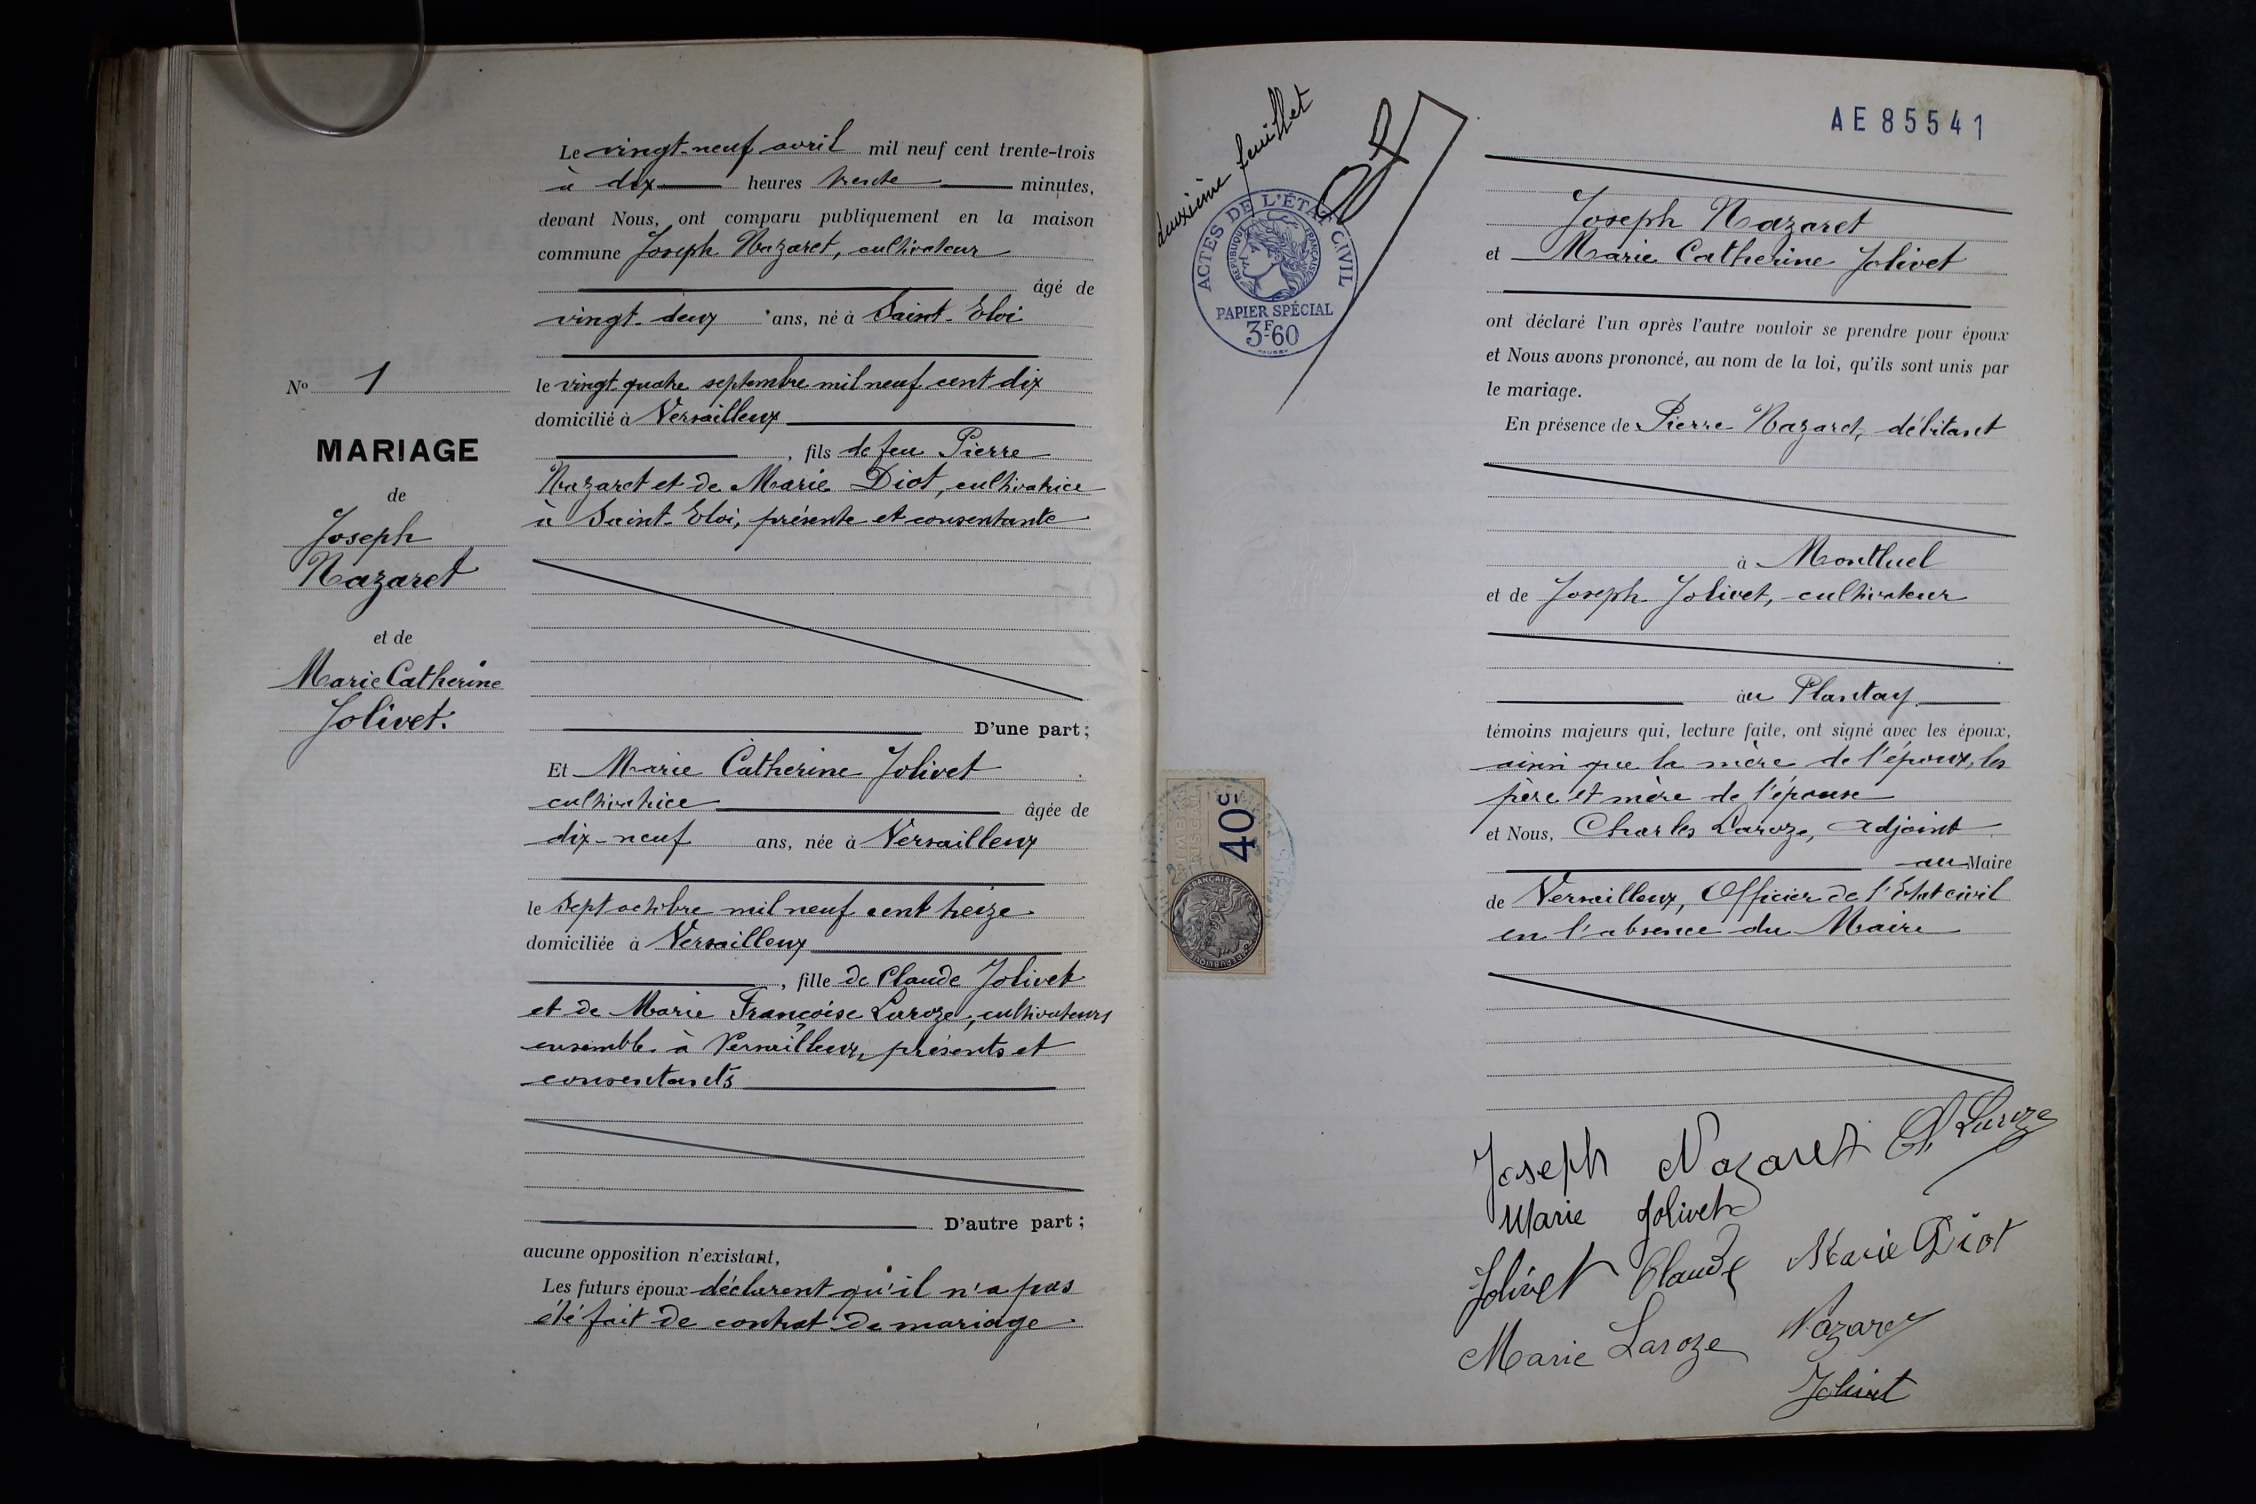 Le vingt-neuf avril mil neuf cent trente-trois
à dix heures trente minutes,
devant Nous, ont comparu publiquement en la maison
commune Joseph Nazaret, cultivateur
âgé de
vingt-deux ans, né à Saint-Eloi
le vingt quatre septembre mil neuf cent dix
domicilié à Versailleux
, fils de feu Pierre
Nazaret et de Marie Diot, cultivatrice
à Saint-Eloi, présente et consentante
D'une part;
Et Marie Catherine Jolivet
cultivatrice âgée de
dix-neuf ans, née à Versailleux
le sept octobre mil neuf cent treize
domiciliée à Versailleux
, fille de Claude Jolivet
et de Marie Françoise Laroze, cultivateurs
ensemble à Versailleux, présents et
consentants
D'autre part;
aucune opposition n'existant,
Les futurs époux déclarent qu'il n'a pas
été fait de contrat de mariage
No 1
MARIAGE
de
Joseph
Nazaret
et de
Marie Catherine
Jolivet.
deuxième feuillet
ACTES DE L'ÉTAT CIVIL
RÉPUBLIQUE FRANÇAISE
PAPIER SPÉCIAL
3F60
40c
AE 85541
Joseph Nazaret
et Marie Catherine Jolivet
ont déclaré l'un après l'autre vouloir se prendre pour époux
et Nous avons prononcé, au nom de la loi, qu'ils sont unis par
le mariage.
En présence de Pierre Nazaret, débitant
à Montluel
et de Joseph Jolivet, cultivateur
au Plantay
témoins majeurs qui, lecture faite, ont signé avec les époux,
ainsi que la mère de l'époux, les
père et mère de l'épouse
et Nous, Charles Laroze, adjoint
au Maire
de Versailleux, Officier de l'Etat civil
en l'absence du Maire
Joseph Nazaret Ch Laroze
Marie Jolivet
Jolivet Claude Marie Diot
Marie Laroze Nazaret
Jolivet